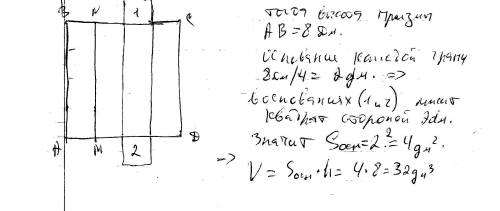 B N 1 C
A M 2 D
тогда высота призмы
AB = 8 дм.
Основание каждой грани
8дм/4 = 2дм. =>
в основаниях (1 и 2) лежит
квадрат стороной 2дм.
Значит Sосн = 2² = 4дм².
-> V = Sосн · h = 4 · 8 = 32дм³